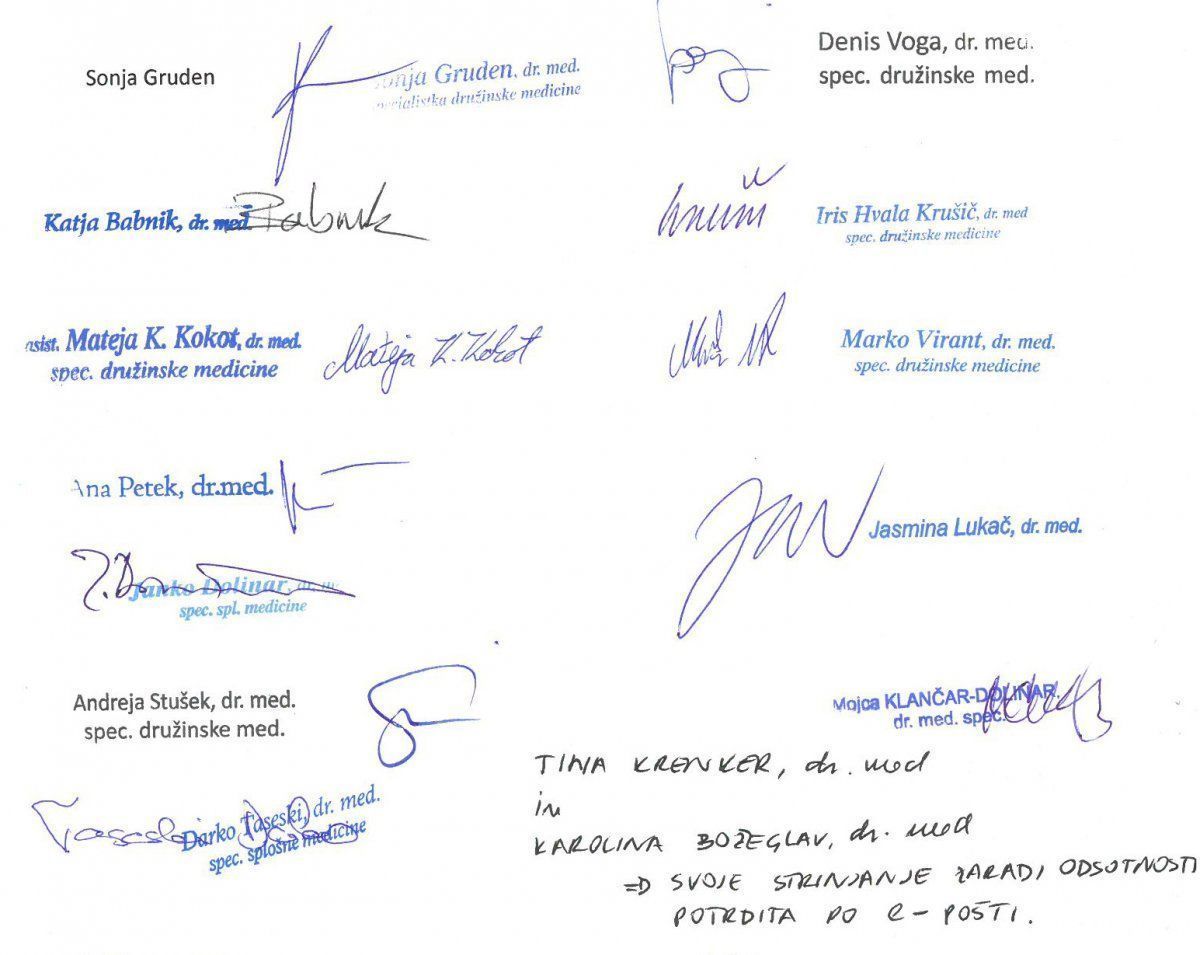 Sonja Gruden
Sonja Gruden, dr. med.
specialistka družinske medicine
Denis Voga, dr. med.
spec. družinske med.
Katja Babnik, dr. med.
Babnik
Iris Hvala Krušič, dr. med
spec. družinske medicine
asist. Mateja K. Kokot, dr. med.
spec. družinske medicine
Mateja K. Kokot
Marko Virant, dr. med.
spec. družinske medicine
Ana Petek, dr.med.
Jasmina Lukač, dr. med.
Janko Dolinar, dr. m
spec. spl. medicine
Andreja Stušek, dr. med.
spec. družinske med.
Mojca KLANČAR-DOLINAR,
dr. med. spec.
Taseski
Darko Taseski, dr. med.
spec. splošne medicine
TINA KRENKER, dr. med
in
KAROLINA BOŽEGLAV, dr. med
=> SVOJE STRINJANJE ZARADI ODSOTNOSTI
POTRDITA PO E-POŠTI.